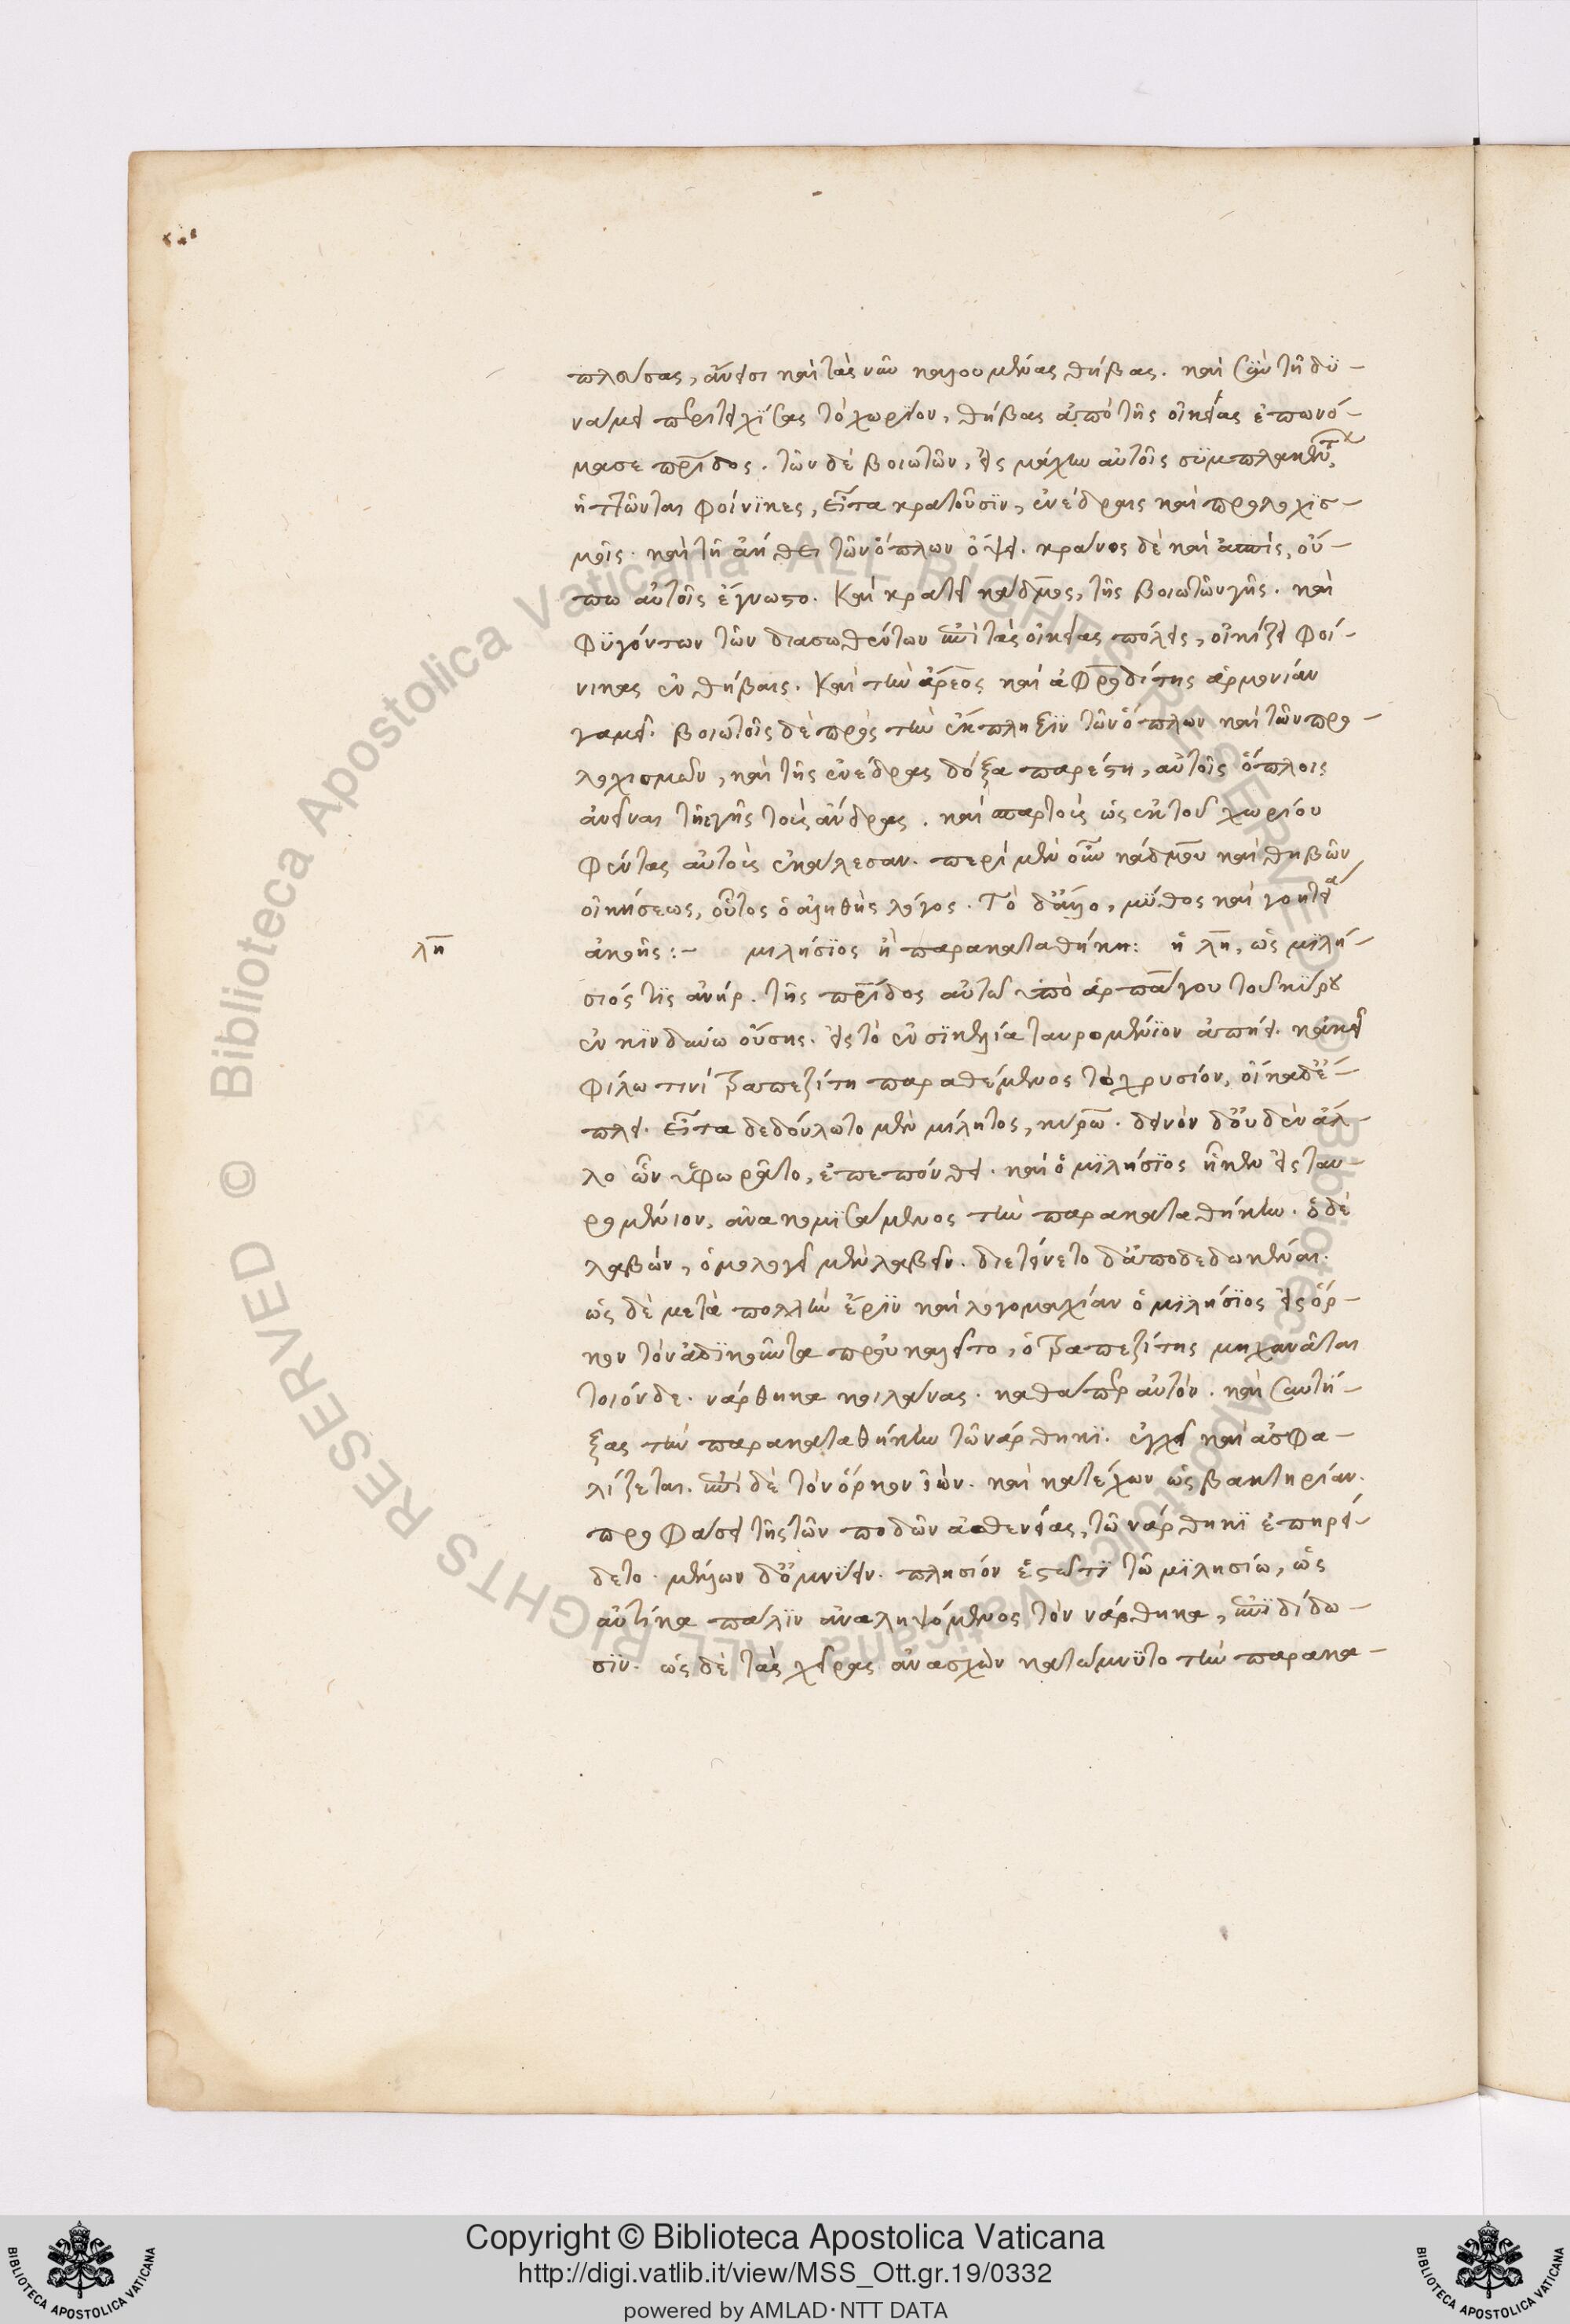 πλεύσας, ἄνεισι καὶ τὰς νῦν καλουμένας θήβας. καὶ σὺν τῇ δυ-
νάμει περιτειχίσας τὸ χωρίον, θήβας ἀπὸ τῆς οἰκείας ἐπωνό-
μασε πρίδος. τῶν δὲ βοιωτῶν, εἰς μάχην αὐτοῖς συμπλακέντων,
ἡττῶνται φοίνικες, εἶτα κρατοῦσιν, ἐνέδραις καὶ προλοχισ-
μοῖς. καὶ τῇ ἀήθει τῶν ὅπλων ὄψει. κράνος δὲ καὶ ἀσπίς, οὔ-
πω αὐτοῖς ἔγνωστο. Καὶ κρατεῖ κάδμος, τῆς βοιωτῶν γῆς. καὶ
φυγόντων τῶν διασωθέντων ἐπὶ τὰς οἰκείας πόλεις, οἰκίζει φοί-
νικας ἐν θήβαις. Καὶ τὴν ἄρεος καὶ ἀφροδίτης ἁρμονίαν
γαμεῖ. βοιωτοῖς δὲ πρὸς τὴν ἔκπληξιν τῶν ὅπλων καὶ τῶν προ-
λοχισμῶν, καὶ τῆς ἐνέδρας δόξα παρέστη, αὐτοῖς ὅπλοις
ἀνεῖναι τὴν γῆς τοὺς ἄνδρας. καὶ σπαρτοὺς ὡς ἐκ τοῦ χωρίου
φύντας αὐτοὺς ἐκάλεσαν. περὶ μὲν οὖν κάδμου καὶ θηβῶν
οἰκήσεως, οὗτος ὁ ἀληθὴς λόγος. Τὸ δ' ἄλλο, μῦθος καὶ γοητεία
λη ἀκοῆς:- μιλήσιος ἢ παρακαταθήκη: ἡ λη, ὡς μιλή-
σιός τις ἀνήρ. τῆς πρίδος αὐτῶ ὑπὸ ἁρπάγου τοῦ κύρου
ἐν κινδύνω οὔσης. εἰς τὸ ἐν σικελία ταυρομένιον ἀπῄει. κἀκεῖ
φίλω τινὶ τραπεζίτη παραθέμενος τὸ χρυσίον, οἴκαδε ἔ-
πλει. εἶτα δεδούλωτο μὲν μίλητος, κύρω. δεινὸν δ' οὐδὲν ἄλ-
λο ὧν ὑφωρᾶτο, ἐπεπόνθει. καὶ ὁ μιλήσιος ἧκεν εἰς ταυ-
ρομένιον, ἀνακομισάμενος τὴν παρακαταθήκην. ὁ δὲ
λαβών, ὁμολογεῖ μὲν λαβεῖν. διετείνετο δ' ἀποδεδωκέναι.
ὡς δὲ μετὰ πολλὴν ἔριν καὶ λογομαχίαν ὁ μιλήσιος εἰς ὅρ-
κον τὸν ἀδικοῦντα προὐκαλεῖτο, ὁ τραπεζίτης μηχανᾶται
τοιόνδε. νάρθηκα κοιλάνας. καθάπερ αὐλόν. καὶ συντή-
ξας τὴν παρακαταθήκην τῶ νάρθηκι. ἐγχεῖ καὶ ἀσφα-
λίζεται. ἐπὶ δὲ τὸν ὅρκον ἰών. καὶ κατέχων ὡς βακτηρίαν.
προφάσει τῆς τῶν ποδῶν ἀσθενείας, τῶ νάρθηκι ἐπηρεί-
δετο. μέλλων δ' ὀμνύειν. πλησίον ἑστῶτι τῶ μιλησίω, ὡς
αὐτίκα πάλιν ἀναληψόμενος τὸν νάρθηκα, ἐπιδίδω-
σιν. ὡς δὲ τὰς χεῖρας ἀνασχὼν κατώμνυτο τὴν παρακα-
Copyright © Biblioteca Apostolica Vaticana
http://digi.vatlib.it/view/MSS_Ott.gr.19/0332
powered by AMLAD·NTT DATA